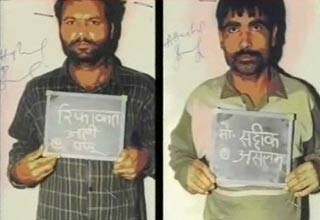 रिफाकत
अली
@ पप्पू
मो. सद्दीक
@ असलम